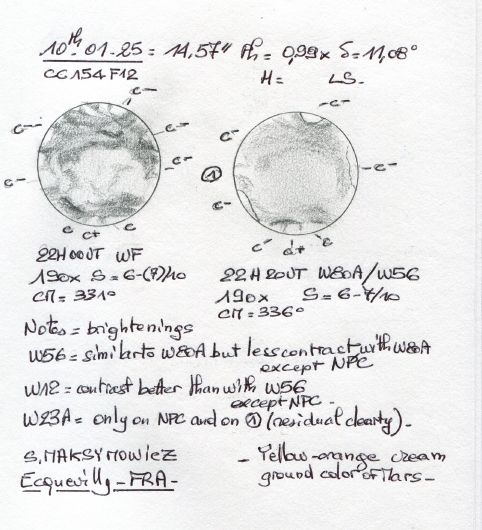 10th-01-25 = 14,57" Ph = 0,99x δ = 11,08°
CC154F12 H = LS-
c-
c-
c-
c-
c-
c c+ c
-c-
c-
-c-
①
c-
c- d+ c
22H00UT WF
190x S = 6-(7)/10
CM = 331°
22H20UT W80A/W56
190x S = 6-7/10
CM = 336°
Notes = brightenings
W56 = similar to W80A but less contract with W80A
except NPC
W12 = contrast better than with W56
except NPC -
W23A = only on NPC and on ① (residual clearty) -
S. MAKSYMOWICZ
Ecquevilly - FRA -
- Yellow-orange cream
ground color of Mars -